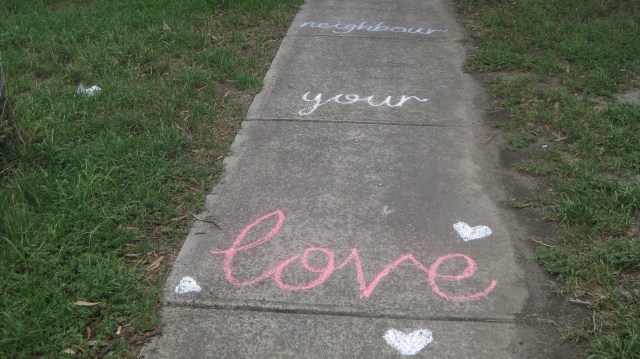 neighbour
your
love